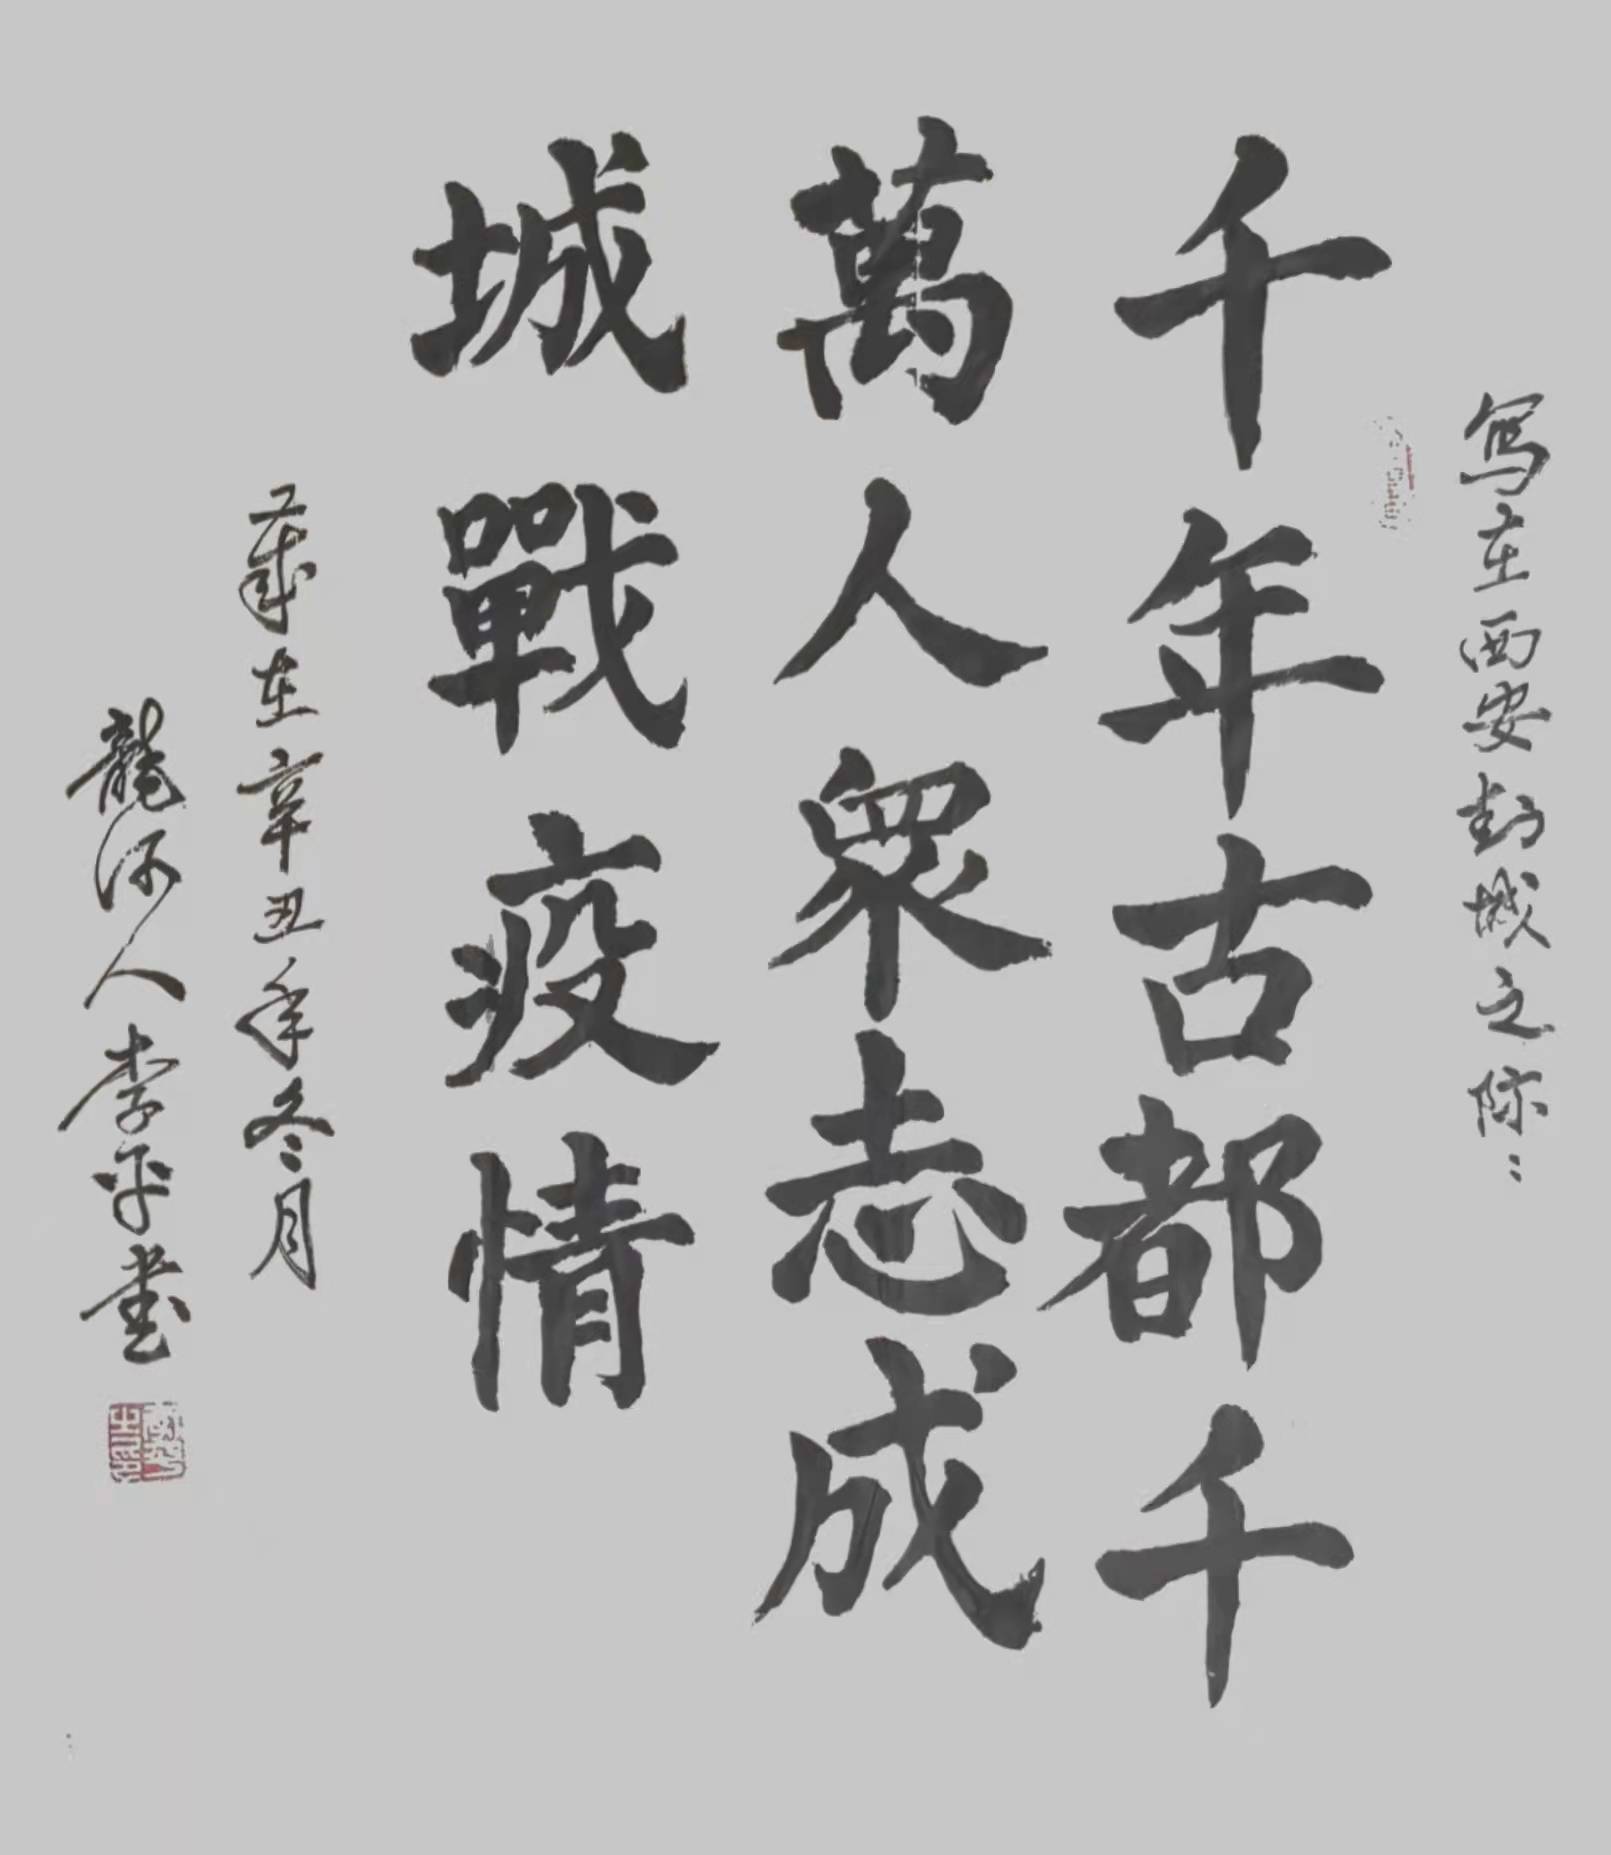 写在西安封城之际:
千年古都千
萬人眾志成
城戰疫情
歲在辛丑年冬月
龍河人李平书